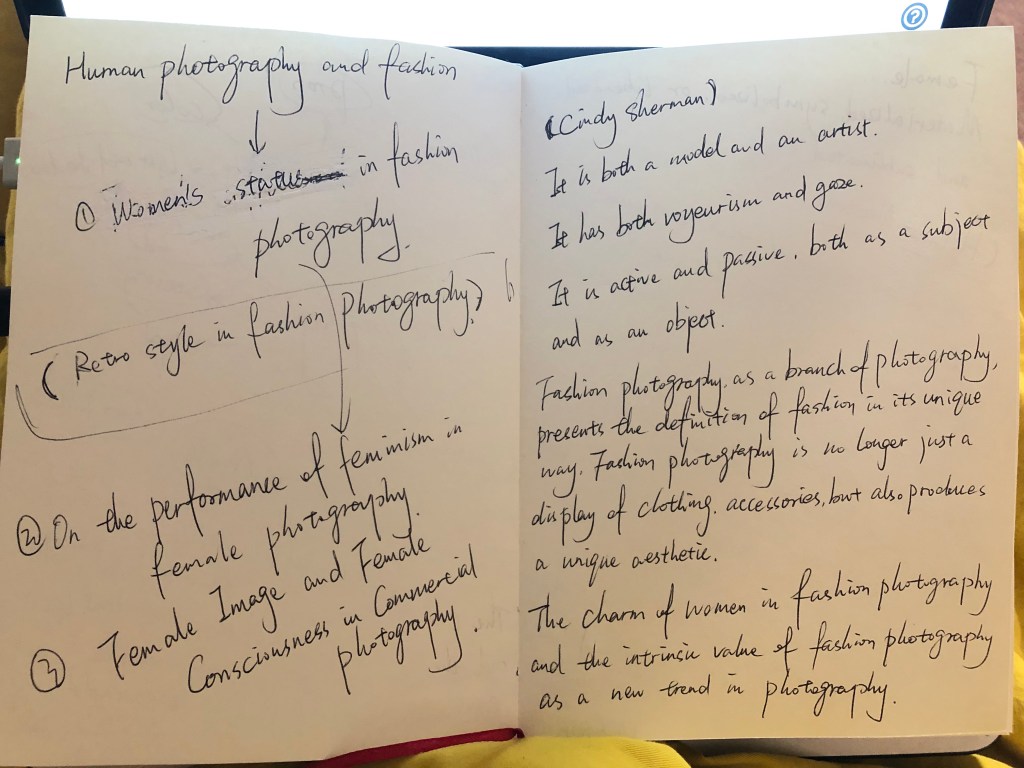 Human photography and fashion
① Women's status in fashion
photography.
(Retro style in fashion photography)
② On the performance of feminism in
female photography.
③ Female Image and Female
Consciousness in Commercial
photography.
(Cindy Sherman)
It is both a model and an artist.
It has both voyeurism and gaze.
It is active and passive, both as a subject
and as an object.
Fashion photography, as a branch of photography,
presents the definition of fashion in its unique
way. Fashion photography is no longer just a
display of clothing, accessories, but also produces
a unique aesthetic.
The charm of women in fashion photography
and the intrinsic value of fashion photography
as a new trend in photography.